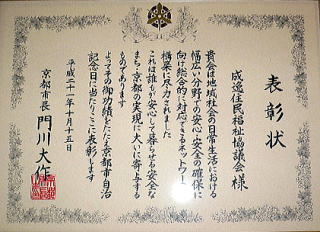 表彰状
成逸住民福祉協議会様
貴会は地域社会の日常生活における
幅広い分野での安心・安全の確保に
向け総合的に対応できるネットワーク
構築に尽力されました
これは誰もが安心して暮らせる安全な
まち・京都の実現に大いに寄与する
ものであります
よってその功績をたたえ京都市自治
記念日に当たりここに表彰します
平成二十一年十月十五日
京都市長 門川大作